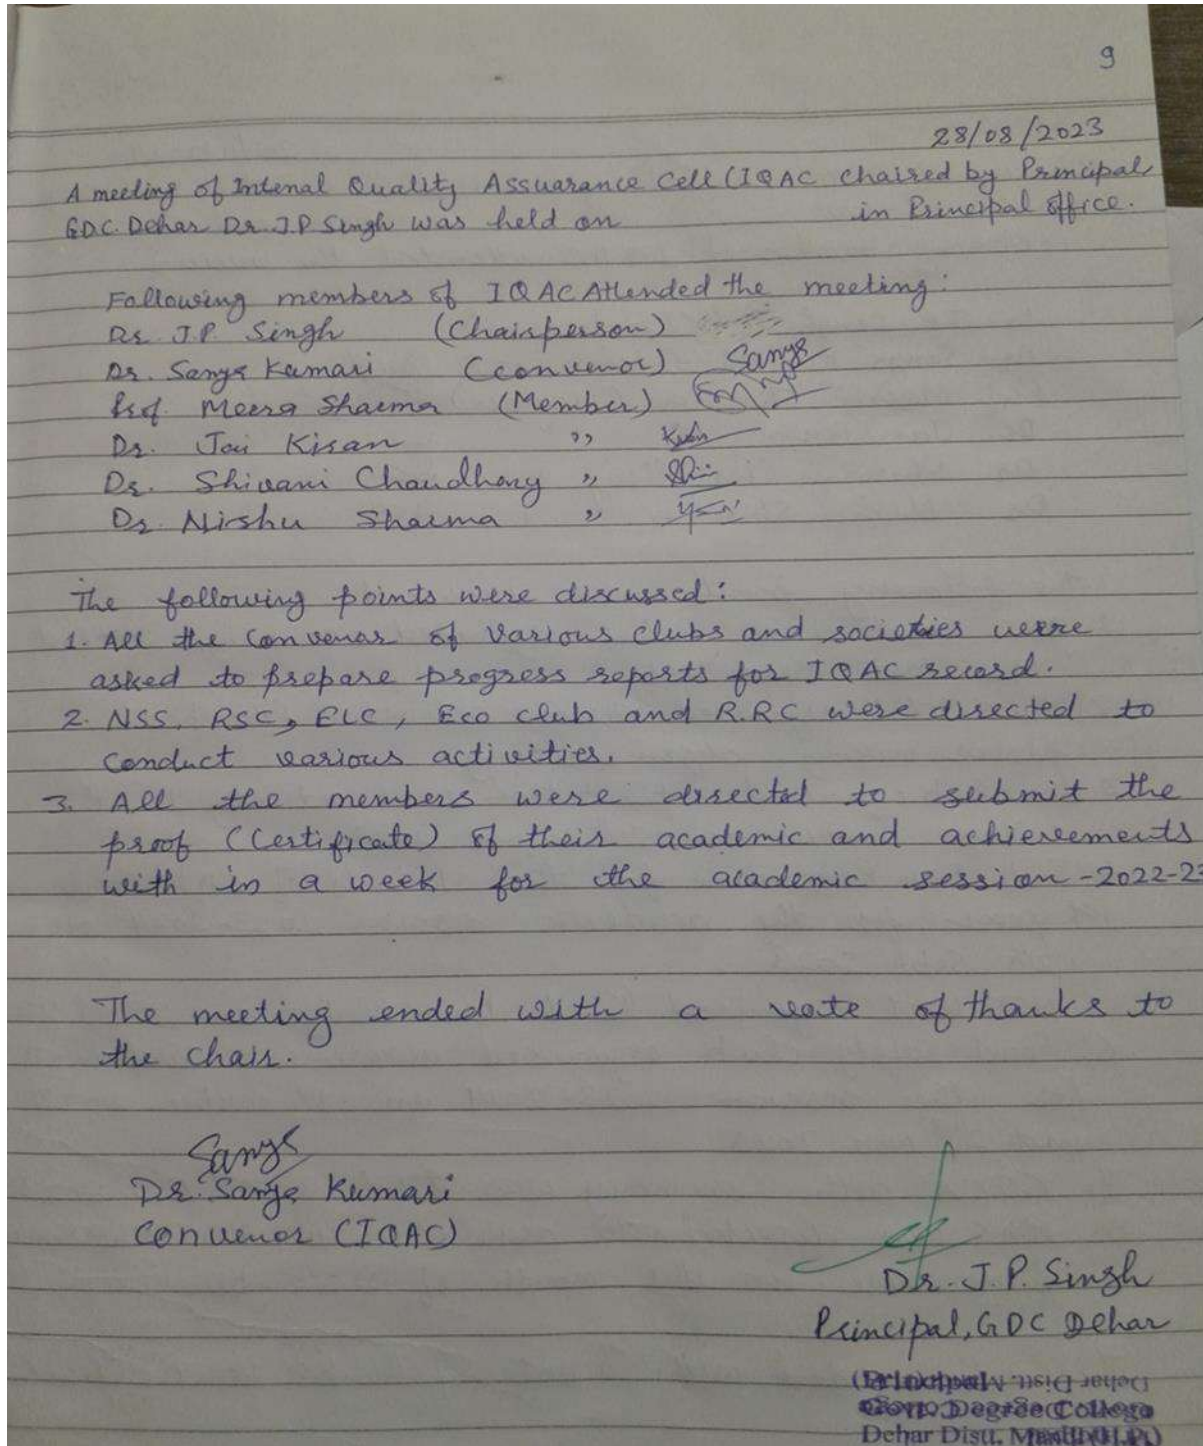 9
28/08/2023
A meeting of Intenal Quality Assuarance Cell (IQAC chaired by Principal
GDC. Dehar Dr. J.P Singh was held on in Principal office.
Following members of IQAC Attended the meeting:
Dr. J.P. Singh (Chairperson)
Dr. Sange Kumari (convenor) Sange
Prof. Meera Sharma (Member)
Dr. Jai Kisan ,,
Dr. Shivani Chaudhary ,,
Dr. Nirshu Sharma ,,
The following points were discussed:
1. All the convenor of various clubs and societies were
asked to prepare progress reports for IQAC record.
2. NSS, RSC, ELC, Eco club and R.RC were directed to
conduct various activities.
3. All the members were directed to submit the
proof (Certificate) of their academic and achievements
with in a week for the academic session -2022-23
The meeting ended with a vote of thanks to
the chair.
Sange
Dr. Sange Kumari
Convenor (IQAC)
Dr. J.P. Singh
Principal, GDC Dehar
Degree College
Dehar Distt.